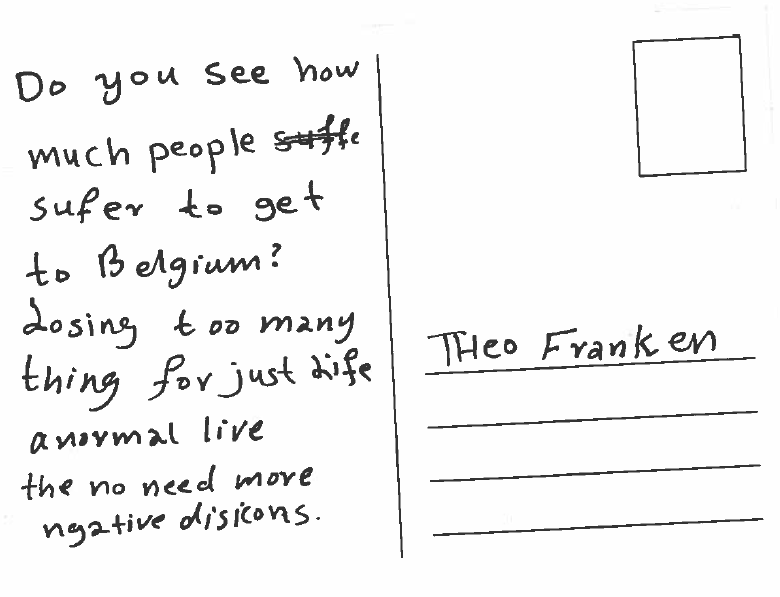 Do you see how
much people suffe
sufer to get
to Belgium?
Losing too many
thing for just Life
a normal live
the no need more
ngative disicons.
THeo Franken